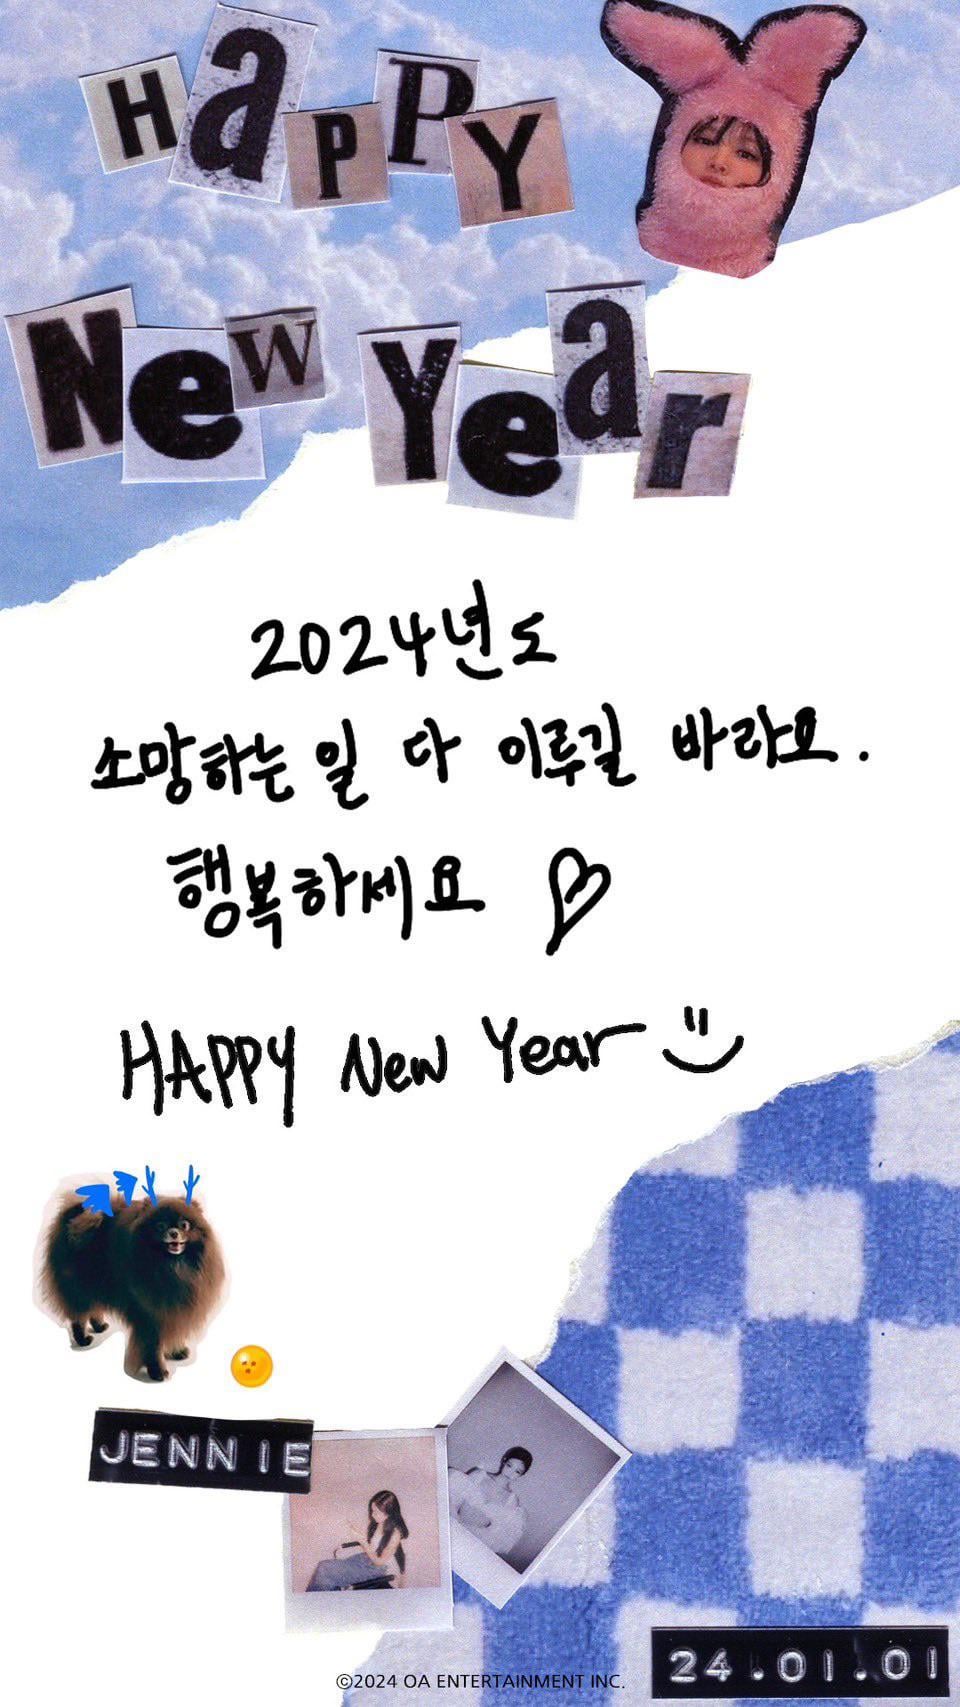 HaPPY
New Year
2024년도
소망하는 일 다 이루길 바라요.
행복하세요
HAPPY New Year
JENNIE
24.01.01
©2024 OA ENTERTAINMENT INC.